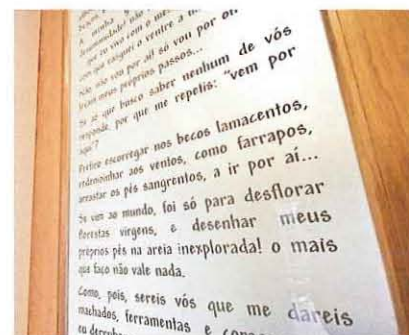 A minha
que eu vivo com o mes
com que rasguei o ventre à m
Não, não vou por aí! só vou por on
levam meus próprios passos...
Se ao que busco saber nenhum de vós
responde, por que me repetis: "vem por
aqui"?
Prefiro escorregar nos becos lamacentos,
redemoinhar aos ventos, como farrapos,
arrastar os pés sangrentos, a ir por aí...
Se vim ao mundo, foi só para desflorar
florestas virgens, e desenhar meus
próprios pés na areia inexplorada! o mais
que faço não vale nada.
Como, pois, sereis vós que me dareis
machados, ferramentas e